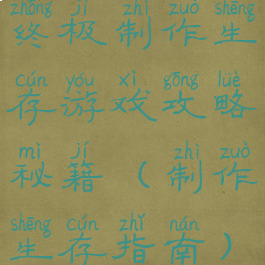 zhōng jí zhì zuò shēng
终极制作生
cún yóu xì gōng lüè
存游戏攻略
mì jí zhì zuò
秘籍(制作
shēng cún zhǐ nán
生存指南)